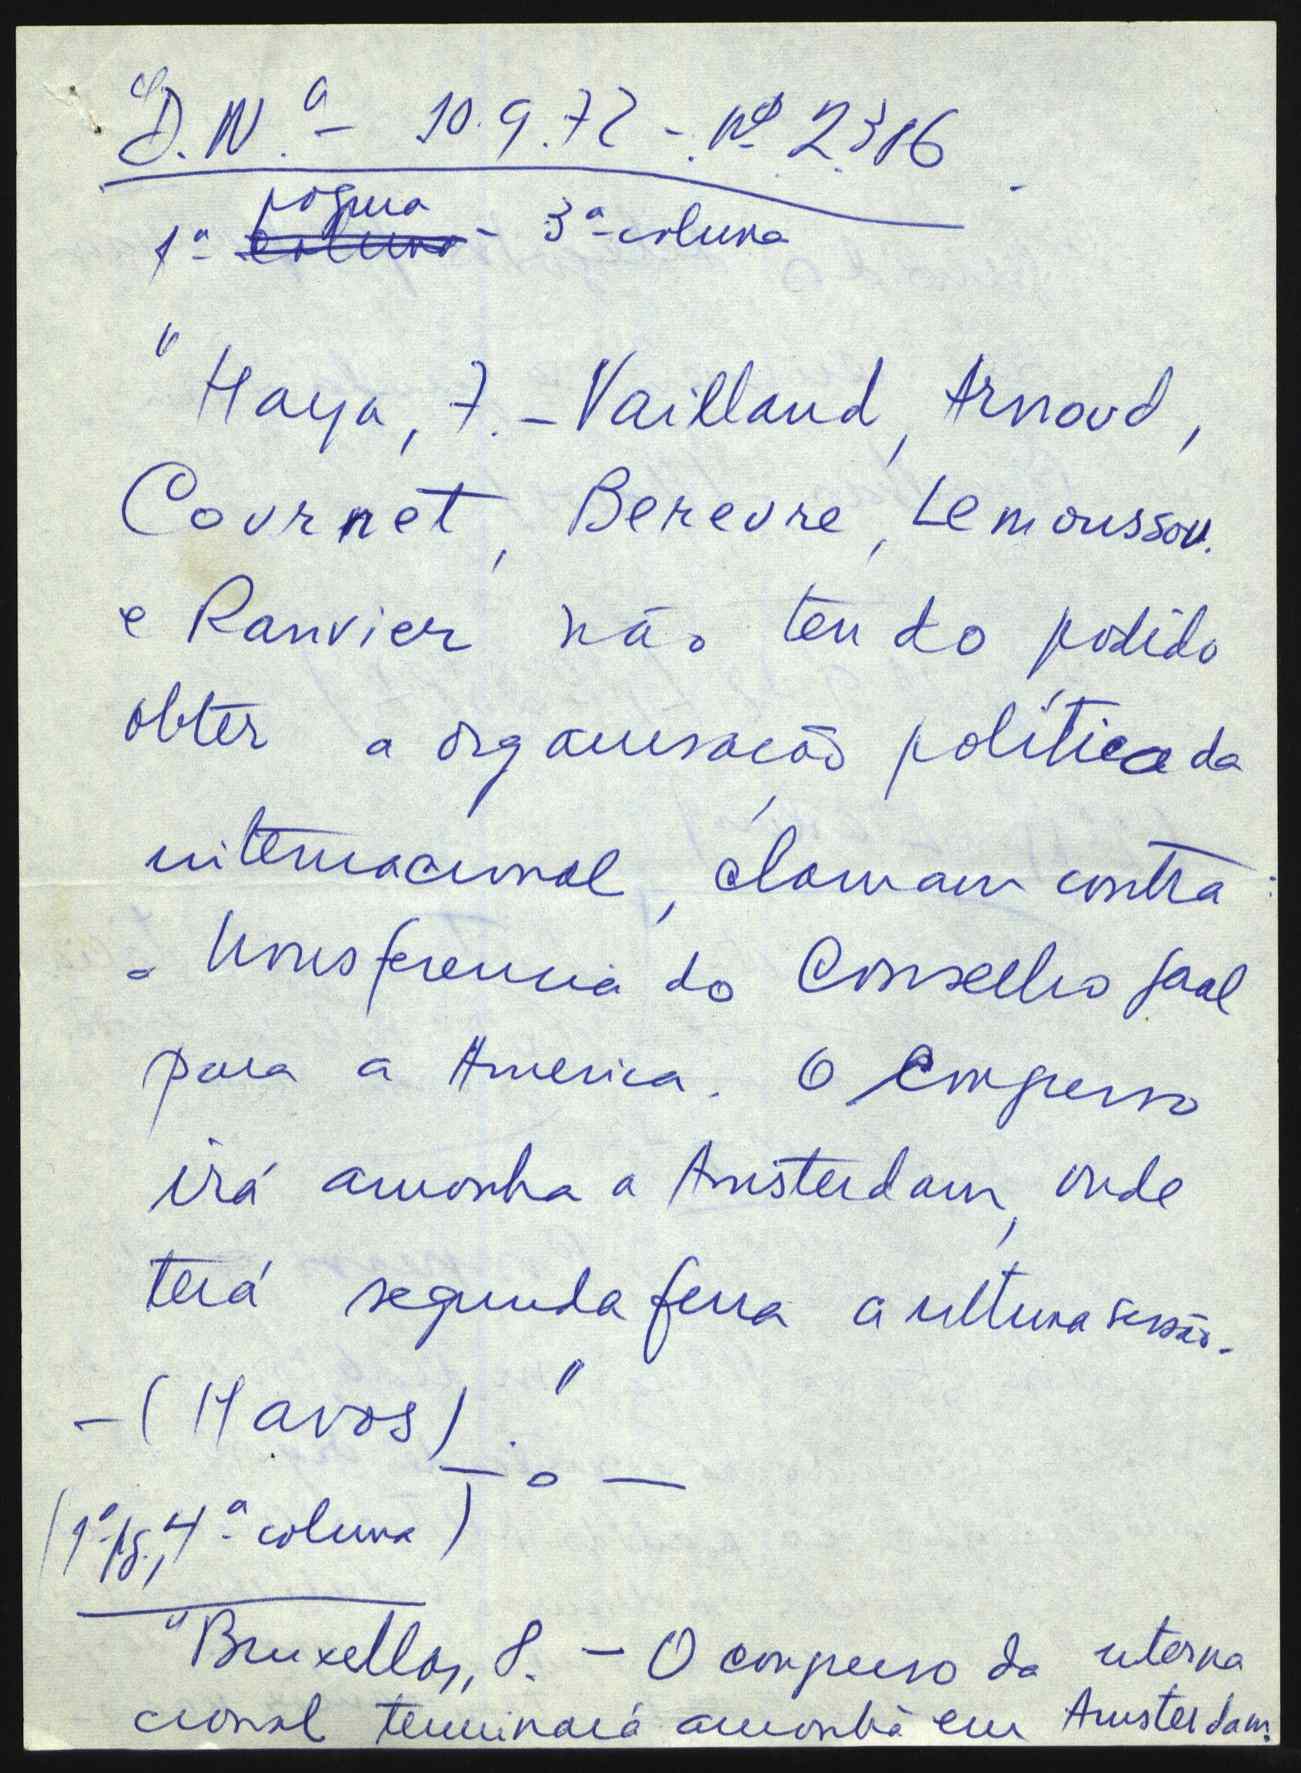 D.N.ª - 10.9.72 - nº 2.316
página
1ª coluna - 3ª coluna
"Haya, 7. - Vailland, Arnoud,
Cournet, Bereure, Lemousson.
e Ranvier não tendo podido
obter a organisação política da
internacional, clamam contra
a transferencia do Conselho geral
para a America. O Congresso
irá amanha a Amsterdam, onde
terá segunda feira a ultima sessão.
- (Havas)."
— o —
(1ª pg., 4ª coluna)
"Bruxellas, 8. - O congresso da interna
cional terminará amanhã em Amsterdam.